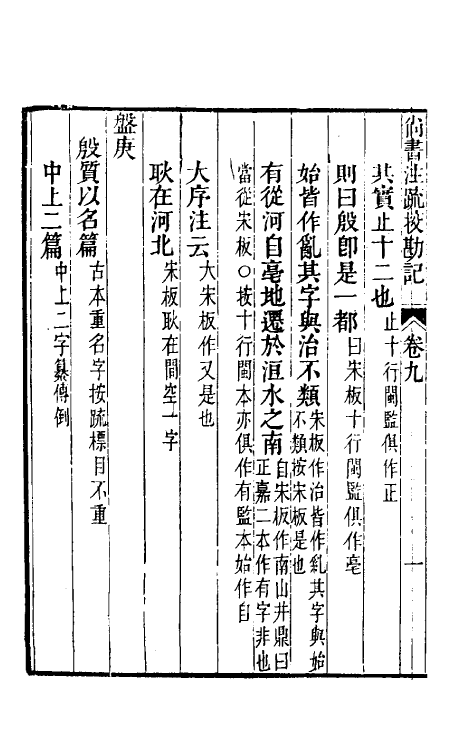 尚書注疏校勘記 卷九 一
其實止十二也 止十行閩監俱作正
則曰殷卽是一都 曰宋板十行閩監俱作亳
始皆作亂其字與治不類 朱板作治皆作亂其字與始不類按宋板是也
有從河自亳地遷於洹水之南 自宋板作南山井鼎曰正嘉二本作有字非也
當從宋板○按十行閩本亦俱作有監本始作自
大序注云 大宋板作又是也
耿在河北 宋板耿在間空一字
盤庚
殷質以名篇 古本重名字按疏標目不重
中上二篇 中上二字纂傳倒